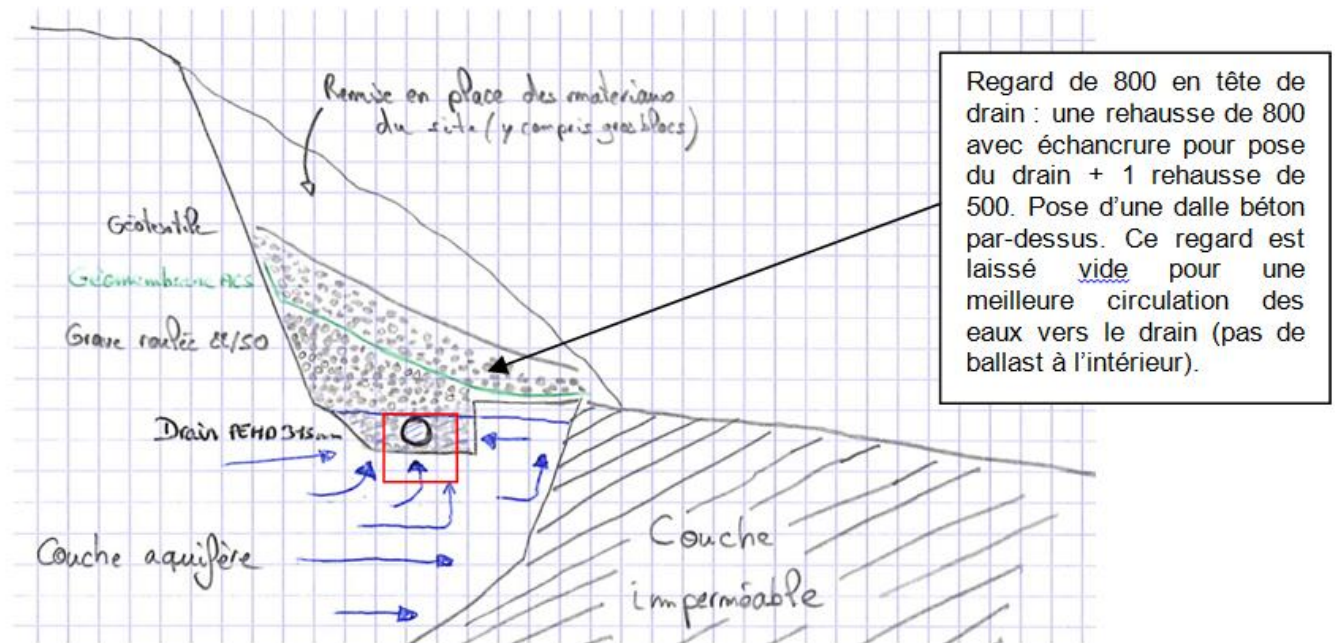 Remise en place des materiaux
du site (y compris gros blocs)
Géotextile
Géomembrane ACS
Grave roulée 22/50
Drain PEHD 315mm
Couche aquifère
Couche
imperméable
Regard de 800 en tête de
drain : une rehausse de 800
avec échancrure pour pose
du drain + 1 rehausse de
500. Pose d’une dalle béton
par-dessus. Ce regard est
laissé vide pour une
meilleure circulation des
eaux vers le drain (pas de
ballast à l’intérieur).